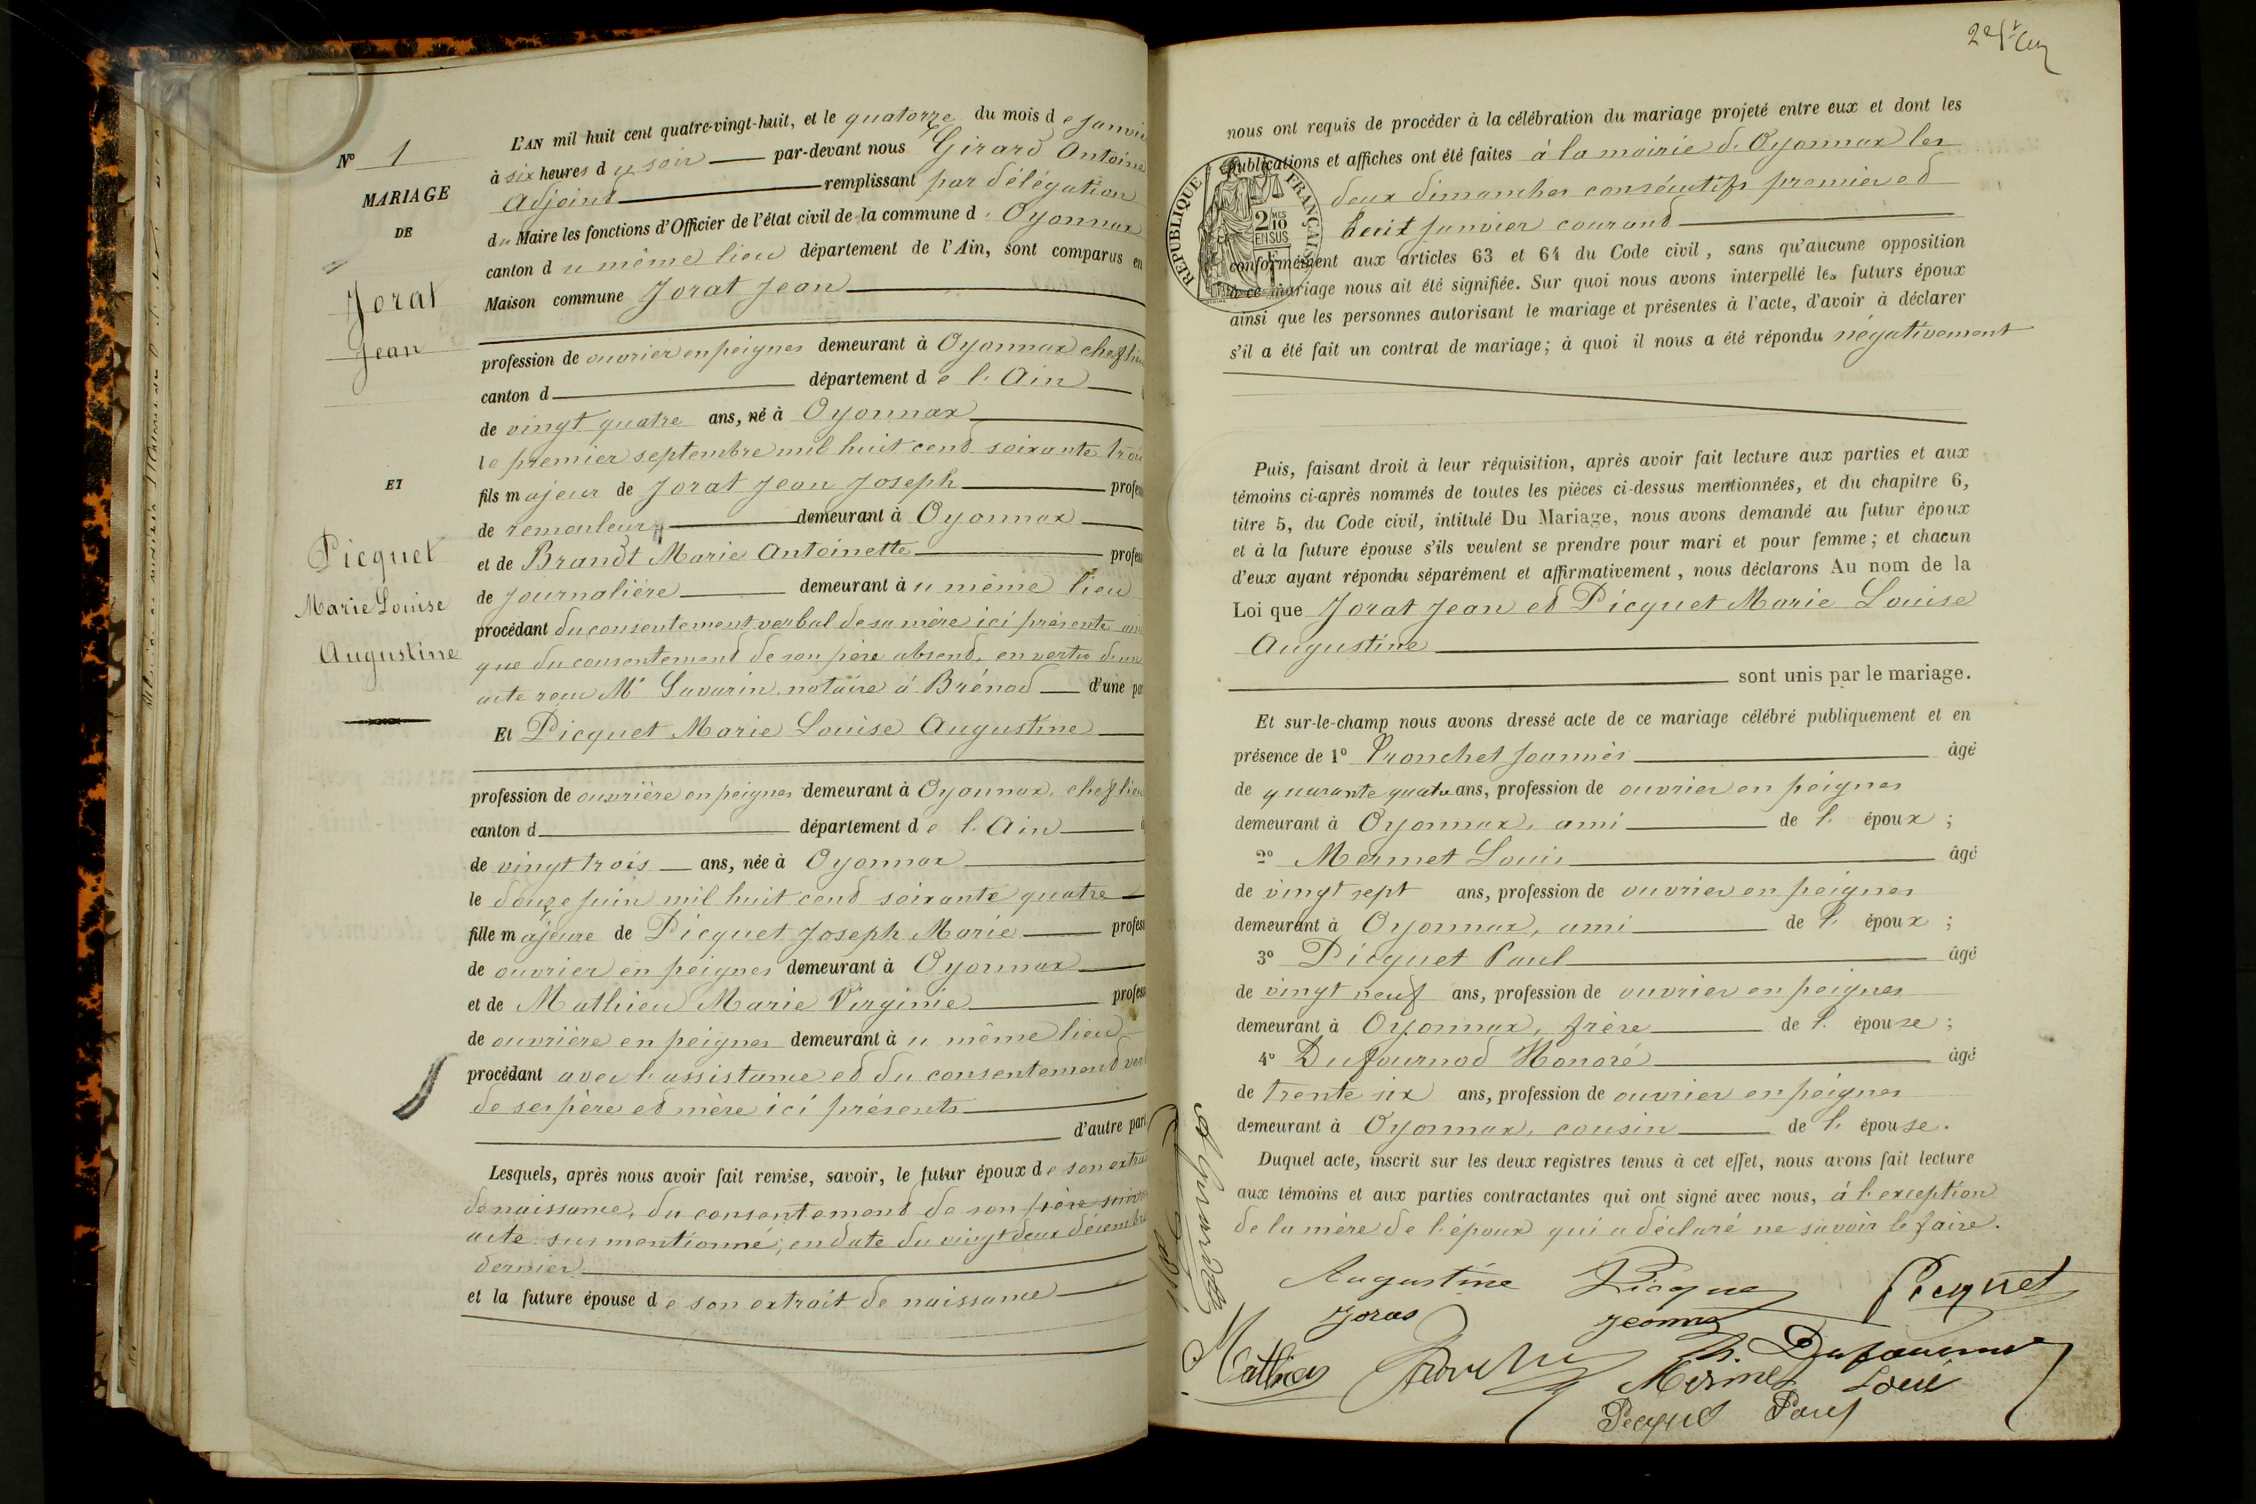 N° 1
MARIAGE
DE
Jorat
Jean
ET
Picquet
Marie Louise
Augustine
L'AN mil huit cent quatre-vingt-huit, et le quatorze du mois de Janvier
à six heures du soir par-devant nous Girard Antoine
Adjoint remplissant par délégation
du Maire les fonctions d'Officier de l'état civil de la commune d'Oyonnax
canton du même lieu département de l'Ain, sont comparus en
Maison commune Jorat Jean
profession de ouvrier en peignes demeurant à Oyonnax chef lieu
canton d département de l'Ain
de vingt quatre ans, né à Oyonnax
le premier septembre mil huit cent soixante trois
fils majeur de Jorat Jean Joseph profess
de remouleur demeurant à Oyonnax
et de Brandt Marie Antoinette profess
de journalière demeurant à u même lieu
procédant du consentement verbal de sa mère ici présente ains
que du consentement de son père absent, en vertu d'un
acte reçu Me Savarin notaire à Brénod d'une par
Et Picquet Marie Louise Augustine
profession de ouvrière en peignes demeurant à Oyonnax, chef lieu
canton d département de l'Ain
de vingt trois ans, née à Oyonnax
le douze juin mil huit cent soixante quatre
fille majeure de Picquet Joseph Marie profess
de ouvrier en peignes demeurant à Oyonnax
et de Mathieu Marie Virginie profess
de ouvrière en peignes demeurant à u même lieu
procédant avec l'assistance et du consentement ver
de ses père et mère ici présents
d'autre part
Lesquels, après nous avoir fait remise, savoir, le futur époux de son extrait
de naissance, du consentement de son père suivant
acte susmentionné, en date du vingt deux décembre
dernier
et la future épouse de son extrait de naissance
nous ont requis de procéder à la célébration du mariage projeté entre eux et dont les
publications et affiches ont été faites à la mairie d'Oyonnax les
deux dimanches consécutifs premier et
huit janvier courant
RÉPUBLIQUE FRANÇAISE
2 MES
10
EN SUS
conformément aux articles 63 et 64 du Code civil, sans qu'aucune opposition
à ce mariage nous ait été signifiée. Sur quoi nous avons interpellé les futurs époux
ainsi que les personnes autorisant le mariage et présentes à l'acte, d'avoir à déclarer
s'il a été fait un contrat de mariage; à quoi il nous a été répondu négativement
Puis, faisant droit à leur réquisition, après avoir fait lecture aux parties et aux
témoins ci-après nommés de toutes les pièces ci-dessus mentionnées, et du chapitre 6,
titre 5, du Code civil, intitulé Du Mariage, nous avons demandé au futur époux
et à la future épouse s'ils veulent se prendre pour mari et pour femme; et chacun
d'eux ayant répondu séparément et affirmativement, nous déclarons Au nom de la
Loi que Jorat Jean et Picquet Marie Louise
Augustine
sont unis par le mariage.
Et sur-le-champ nous avons dressé acte de ce mariage célébré publiquement et en
présence de 1° Tronchet Joannès âgé
de quarante quatre ans, profession de ouvrier en peignes
demeurant à Oyonnax, ami de l'époux;
2° Mermet Louis âgé
de vingt sept ans, profession de ouvrier en peignes
demeurant à Oyonnax, ami de l'époux;
3° Picquet Paul âgé
de vingt neuf ans, profession de ouvrier en peignes
demeurant à Oyonnax, frère de l'épouse;
4° Dufournod Honoré âgé
de trente six ans, profession de ouvrier en peignes
demeurant à Oyonnax, cousin de l'épouse.
Duquel acte, inscrit sur les deux registres tenus à cet effet, nous avons fait lecture
aux témoins et aux parties contractantes qui ont signé avec nous, à l'exception
de la mère de l'époux qui a déclaré ne savoir le faire.
Augustine Picquet Picquet
Mermet Loui